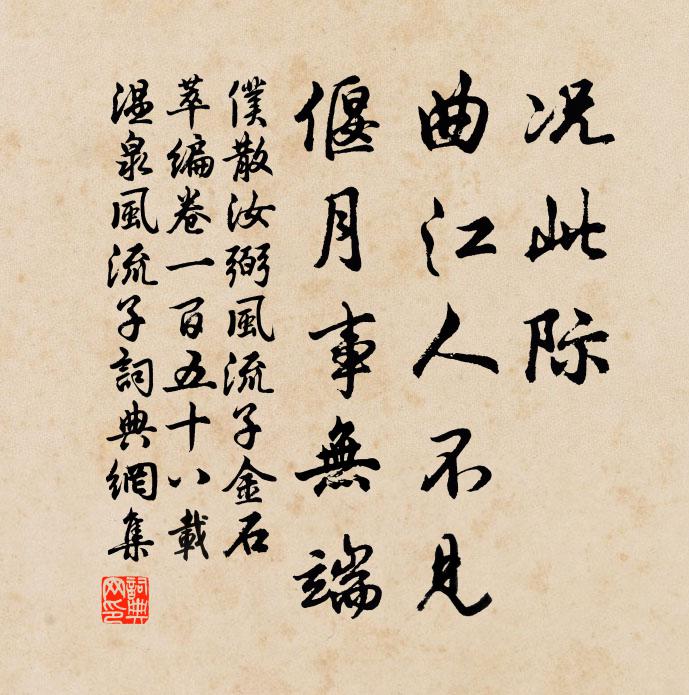 况此际
曲江人不见
偃月事無端
僕散汝弼風流子金石
萃编卷一百五十八載
温泉風流子詞典網集
詞典網印